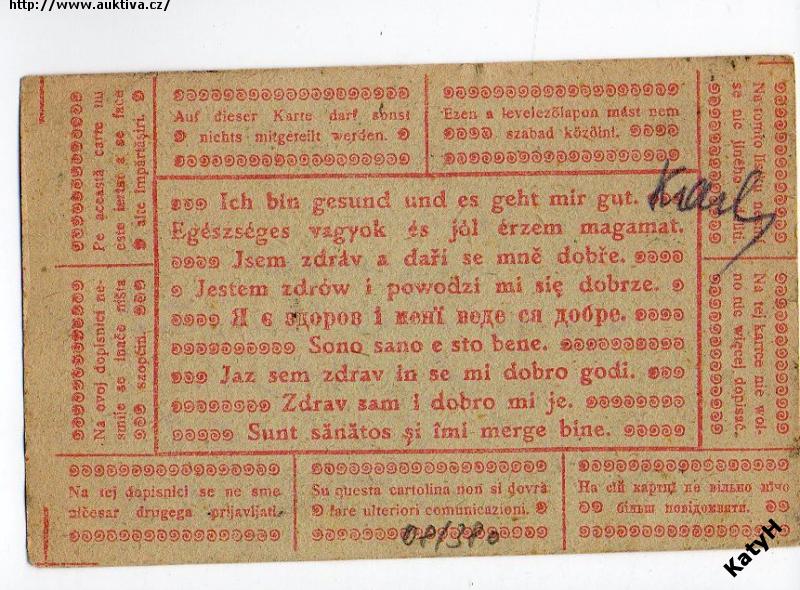 http://www.auktiva.cz/
Auf dieser Karte darf sonst
nichts mitgeteilt werden.
Ezen a levelezőlapon mást nem
szabad közölni.
Pe această carte nu
este iertat a se face
alte împărtăşiri.
Na tomto lístku
se nic jiného
Ich bin gesund und es geht mir gut.
Egészséges vagyok és jól érzem magamat.
Jsem zdráv a daří se mně dobře.
Jestem zdrów i powodzi mi się dobrze.
Я є здоров і менї веде ся добре.
Sono sano e sto bene.
Jaz sem zdrav in se mi dobro godi.
Zdrav sam i dobro mi je.
Sunt sănătos şi îmi merge bine.
Na ovoj dopisnici ne-
smije se inače ništa
Na tej kartce nie wol-
no nic więcej dopisać.
Na tej dopisnici se ne sme
ničesar drugega prijavljati.
Su questa cartolina non si dovrà
fare ulteriori comunicazioni.
На сїй картцї не вільно нічо
більш повідомляти.
KatyH